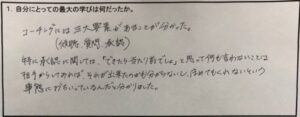 1. 自分にとっての最大の学びは何だったか。
コーチングには三大要素があることが分かった。
(傾聴、質問、承認)
特に承認に関しては、「できたら当たり前でしょ」と思って何も言わないことは
相手からしてみれば、それが出来たのかも分からないし、ほめてもくれないという
事態に陥っているんだと分かりました。